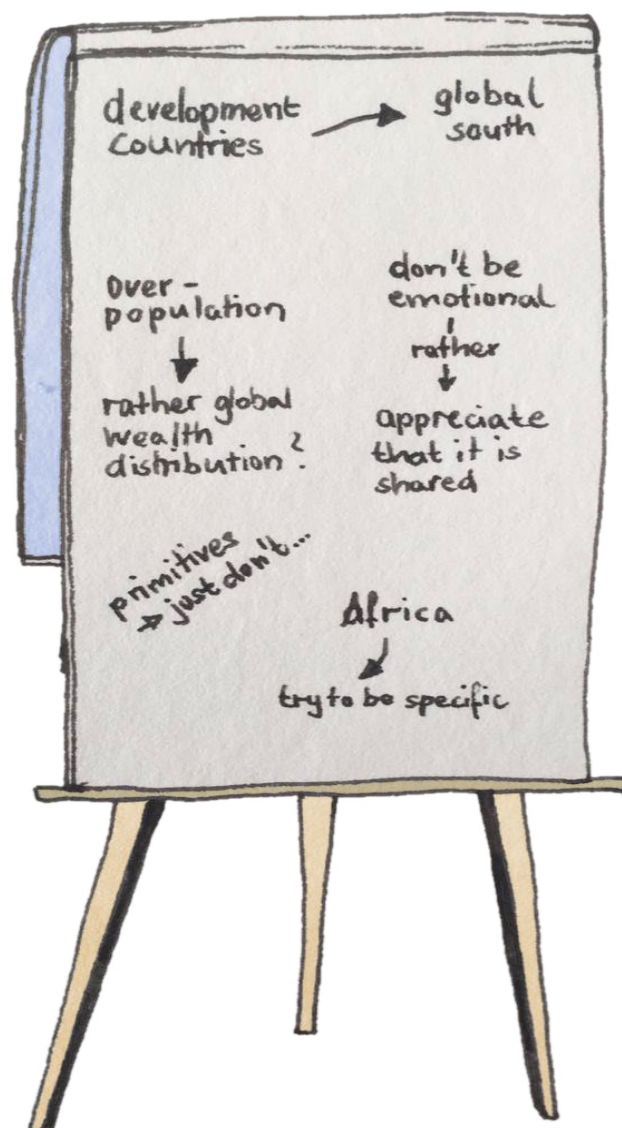 development
countries
global
south
over-
population
rather global
wealth
distribution?
don't be
emotional
rather
appreciate
that it is
shared
primitives
just don't...
Africa
try to be specific